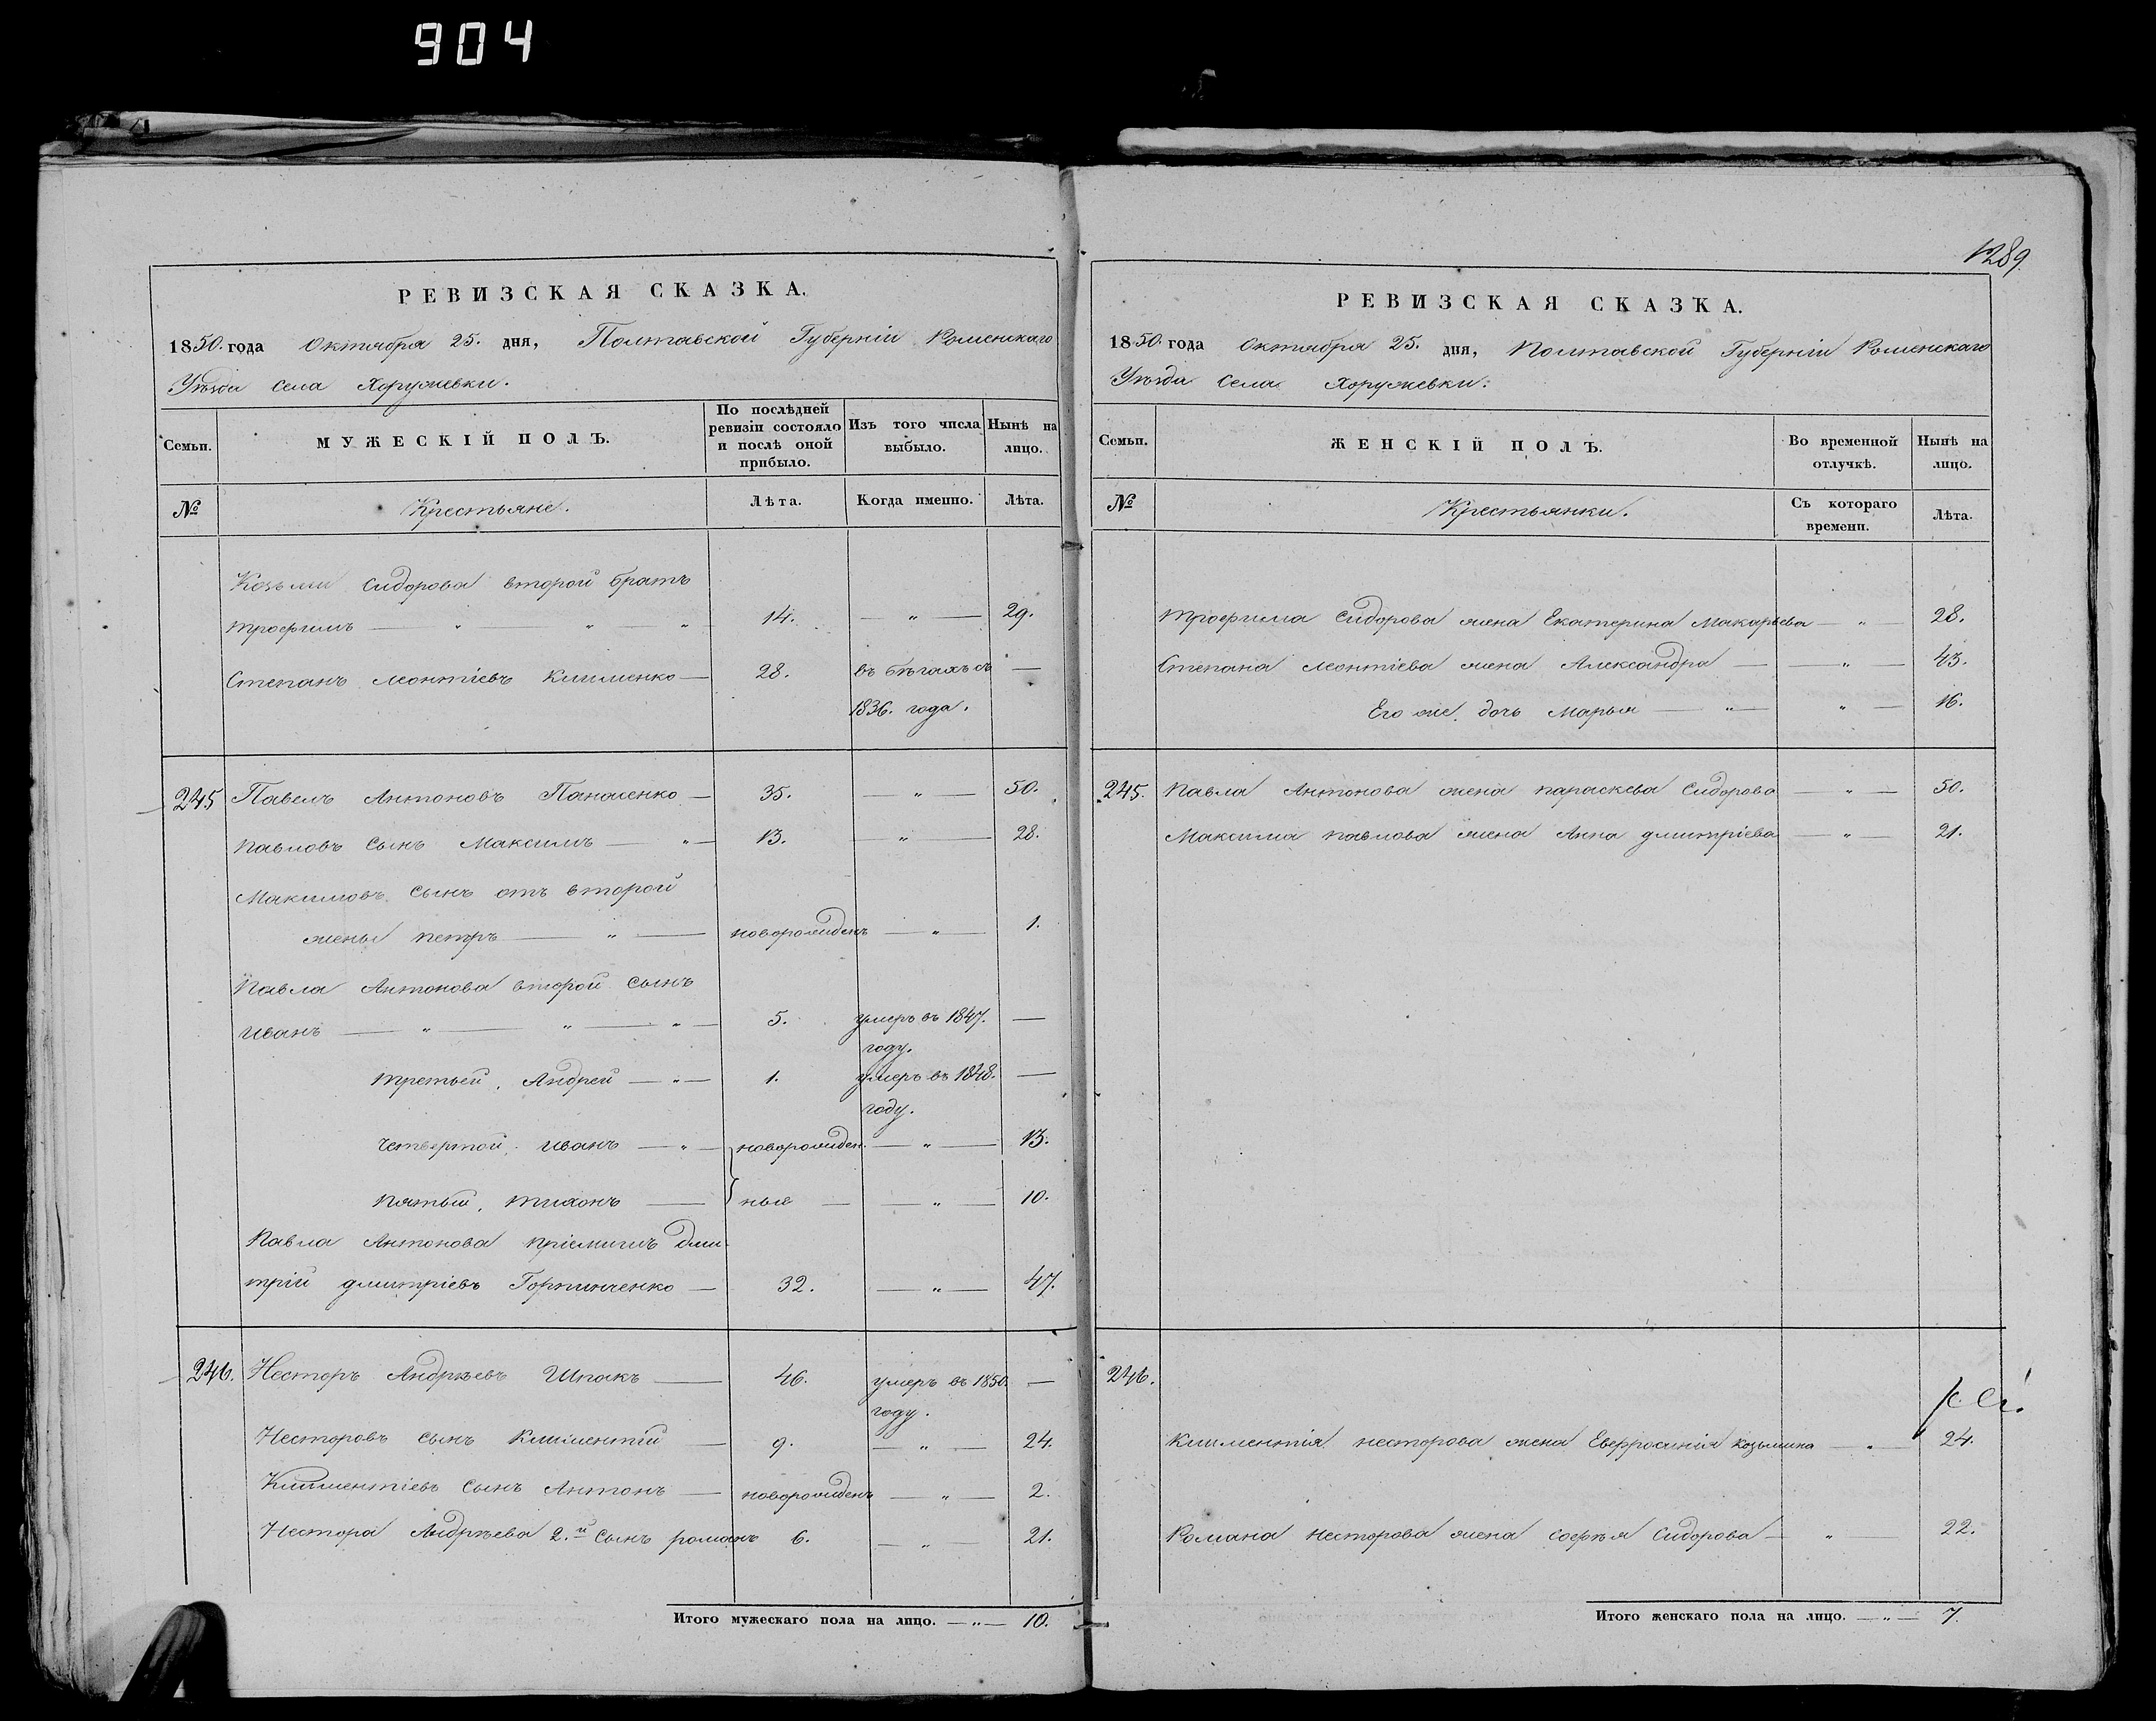 904
РЕВИЗСКАЯ СКАЗКА.
1850. года Октября 25. дня, Полтавской Губерніи Роменскаго
Уѣзда Села Хоружевки.
Семьи. МУЖЕСКІЙ ПОЛЪ. По послѣдней ревизіи состояло и послѣ оной прибыло. Изъ того числа выбыло. Нынѣ на лицо.
№ Крестьяне. Лѣта. Когда именно. Лѣта.
Козьми Сидорова второй братъ
трофимъ — " " — " 14. — " — 29.
Степанъ леонтіевъ Клименко — 28. въ бѣгахъ съ —
1836. года.
245 Павелъ Антоновъ Панасенко — 35. — " — 50.
павловъ сынъ Максимъ — " — 13. — " — 28.
Максимовъ сынъ отъ второй
жены петръ — " — новорожденъ — " — 1.
Павла Антонова второй сынъ
иванъ — " — " — " — 5. умеръ въ 1847. —
году.
третьей, Андрей — " — 1. умеръ въ 1848. —
году.
четвертой, иванъ — " — новорожден — " — 13.
пятый, тихонъ — ные — — " — 10.
Павла Антонова пріемышъ Дми-
трій дмитріевъ Горпинченко — 32. — " — 47.
246. Несторъ Андрѣевъ Шпакъ — 46. умеръ въ 1850. —
году.
Несторовъ сынъ климентій — 9. — " — 24.
Климентіевъ сынъ Антонъ — новорожденъ — " — 2.
Нестора Андрѣева 2.й сынъ романъ 6. — " — 21.
Итого мужескаго пола на лицо. — " — 10.
1289.
РЕВИЗСКАЯ СКАЗКА.
1850. года Октября 25. дня, Полтавской Губерніи Роменскаго
Уѣзда Села Хоружевки.
Семьи. ЖЕНСКІЙ ПОЛЪ. Во временной отлучкѣ. Нынѣ на лицо.
№ Крестьянки. Съ котораго времени. Лѣта.
трофима Сидорова жена Екатерина Макарьева — " — 28.
Степана леонтіева жена Александра — — " — 43.
Его же дочь Марья — " — " — 16.
245. павла Антонова жена параскева Сидорова — " — 50.
Максима павлова жена Анна дмитріева — " — 21.
246.
климентія несторова жена Евфросинія козьмина — " — 24.
Романа несторова жена софья Сидорова — " — 22.
Итого женскаго пола на лицо. — " — 7.